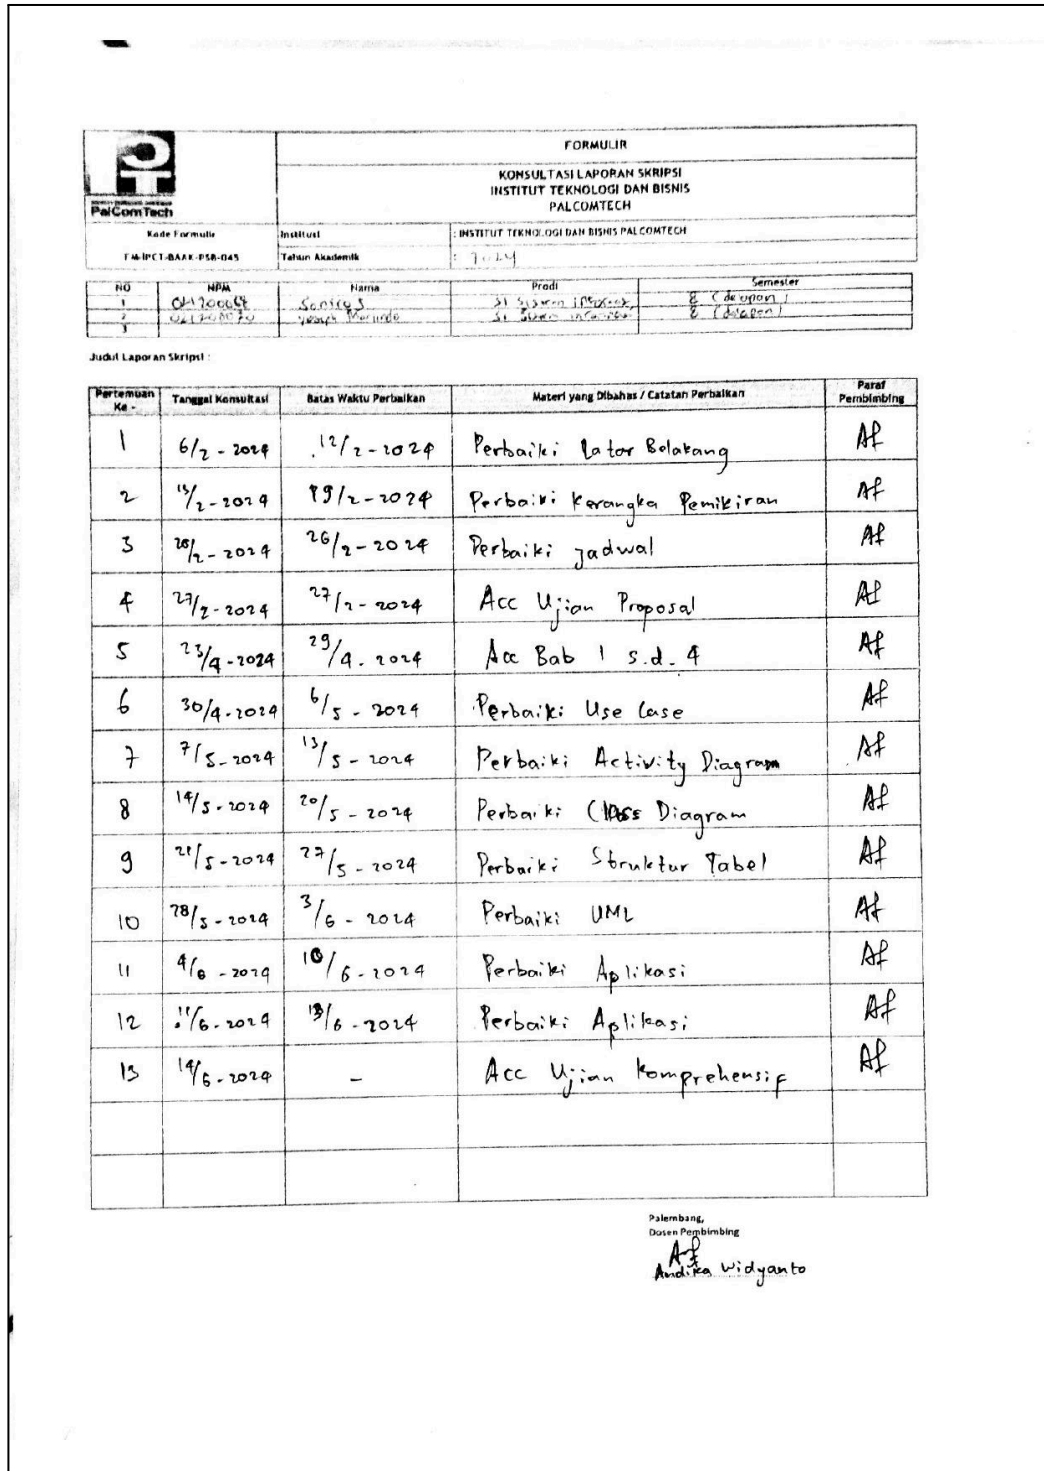 FORMULIR
KONSULTASI LAPORAN SKRIPSI
INSTITUT TEKNOLOGI DAN BISNIS
PALCOMTECH
PalComTech
Kode Formulir Institusi : INSTITUT TEKNOLOGI DAN BISNIS PALCOMTECH
FM-IPCT-BAAK-PSB-045 Tahun Akademik : 2024
NO NPM Nama Prodi Semester
1 S1 Sistem 8 (delapan)
2 Yoseph S1 Sistem 8 (delapan)
3
Judul Laporan Skripsi :
Pertemuan Ke - Tanggal Konsultasi Batas Waktu Perbaikan Materi yang Dibahas / Catatan Perbaikan Paraf Pembimbing
1 6/2 - 2024 12/2 - 2024 Perbaiki Latar Belakang Af
2 13/2 - 2024 19/2 - 2024 Perbaiki Kerangka Pemikiran Af
3 20/2 - 2024 26/2 - 2024 Perbaiki Jadwal Af
4 27/2 - 2024 27/2 - 2024 Acc Ujian Proposal Af
5 23/4 - 2024 29/4 - 2024 Acc Bab 1 s.d. 4 Af
6 30/4 - 2024 6/5 - 2024 Perbaiki Use Case Af
7 7/5 - 2024 13/5 - 2024 Perbaiki Activity Diagram Af
8 14/5 - 2024 20/5 - 2024 Perbaiki Class Diagram Af
9 21/5 - 2024 27/5 - 2024 Perbaiki Struktur Tabel Af
10 28/5 - 2024 3/6 - 2024 Perbaiki UML Af
11 4/6 - 2024 10/6 - 2024 Perbaiki Aplikasi Af
12 11/6 - 2024 13/6 - 2024 Perbaiki Aplikasi Af
13 14/6 - 2024 - Acc Ujian Komprehensif Af
Palembang,
Dosen Pembimbing
Af
Andika Widyanto